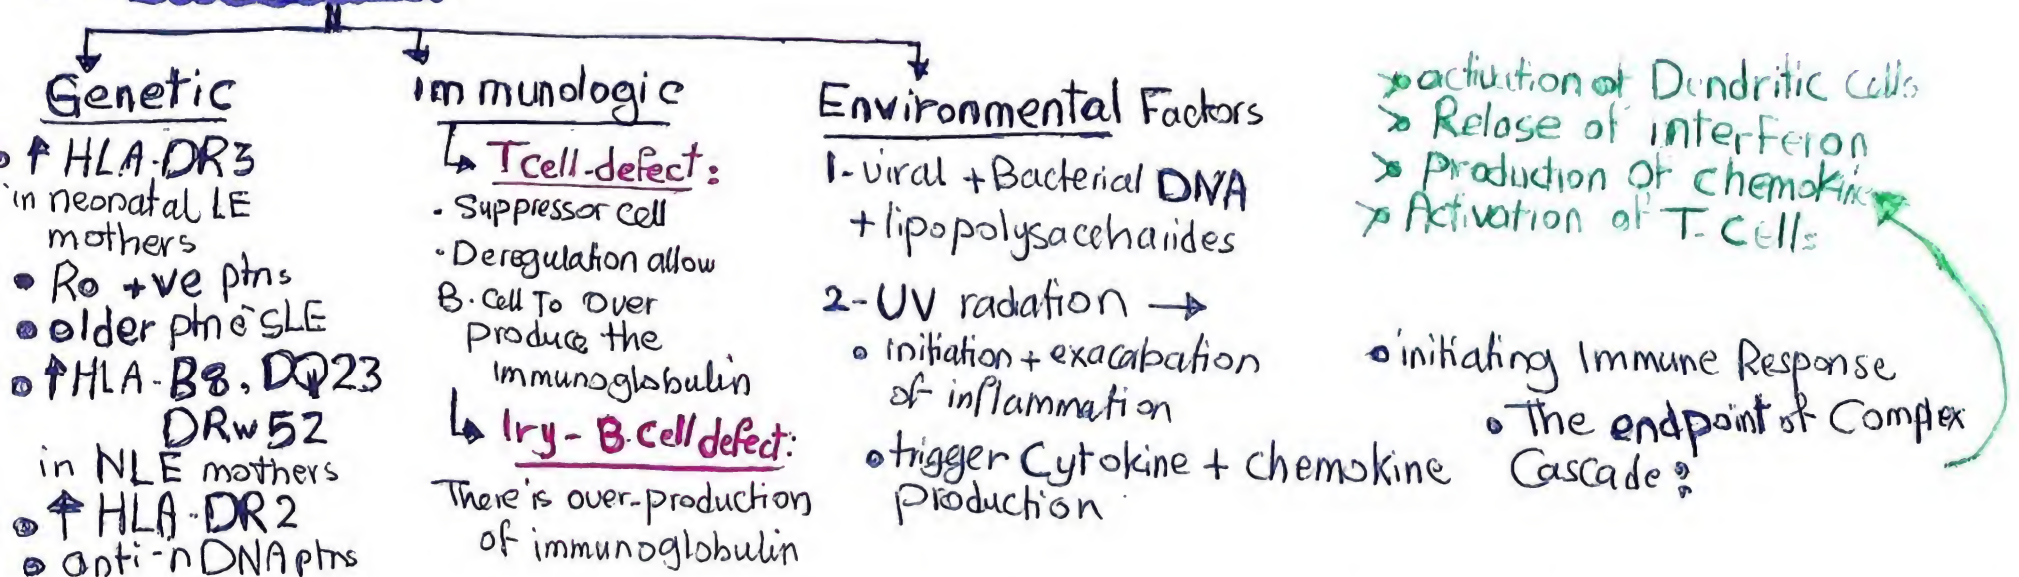 Genetic
• ↑ HLA-DR3
in neonatal LE
mothers
• Ro +ve ptns
• older ptn c̄ SLE
• ↑HLA-B8, DQ23
DRw52
in NLE mothers
• ↑ HLA-DR2
• anti-nDNA ptns
Immunologic
↳ T cell-defect:
• Suppressor cell
• Deregulation allow
B. Cell To Over
produce the
immunoglobulin
↳ Iry - B.cell defect:
There is over-production
of immunoglobulin
Environmental Factors
1- viral + Bacterial DNA
+ lipopolysaccharides
2- UV radation →
• initiation + exacabation
of inflammation
• trigger Cytokine + chemokine
production
> activation of Dendritic Cells
> Relase of interferon
> production of chemokine
> Activation of T- Cells
• initiating Immune Response
• The endpoint of Complex
Cascade :